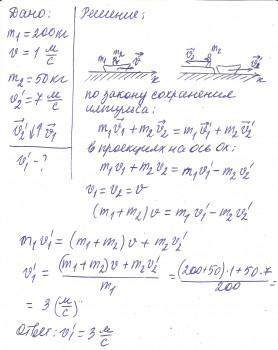 Дано:
m₁ = 200кг
v = 1 м/с
m₂ = 50кг
v₂' = 7 м/с
v⃗₂' ↓↑ v⃗₁
v₁' - ?
Решение:
m₁ m₂ v⃗ x
v⃗₂' m₂ v⃗₁' x
по закону сохранения
импульса:
m₁v⃗₁ + m₂v⃗₂ = m₁v⃗₁' + m₂v⃗₂'
в проекциях на ось Ox:
m₁v₁ + m₂v₂ = m₁v₁' - m₂v₂'
v₁ = v₂ = v
(m₁ + m₂)v = m₁v₁' - m₂v₂'
m₁v₁' = (m₁ + m₂)v + m₂v₂'
v₁' = ((m₁ + m₂)v + m₂v₂')/m₁ = ((200+50)·1+50·7)/200 =
= 3 (м/с)
Ответ: v₁' = 3 м/с